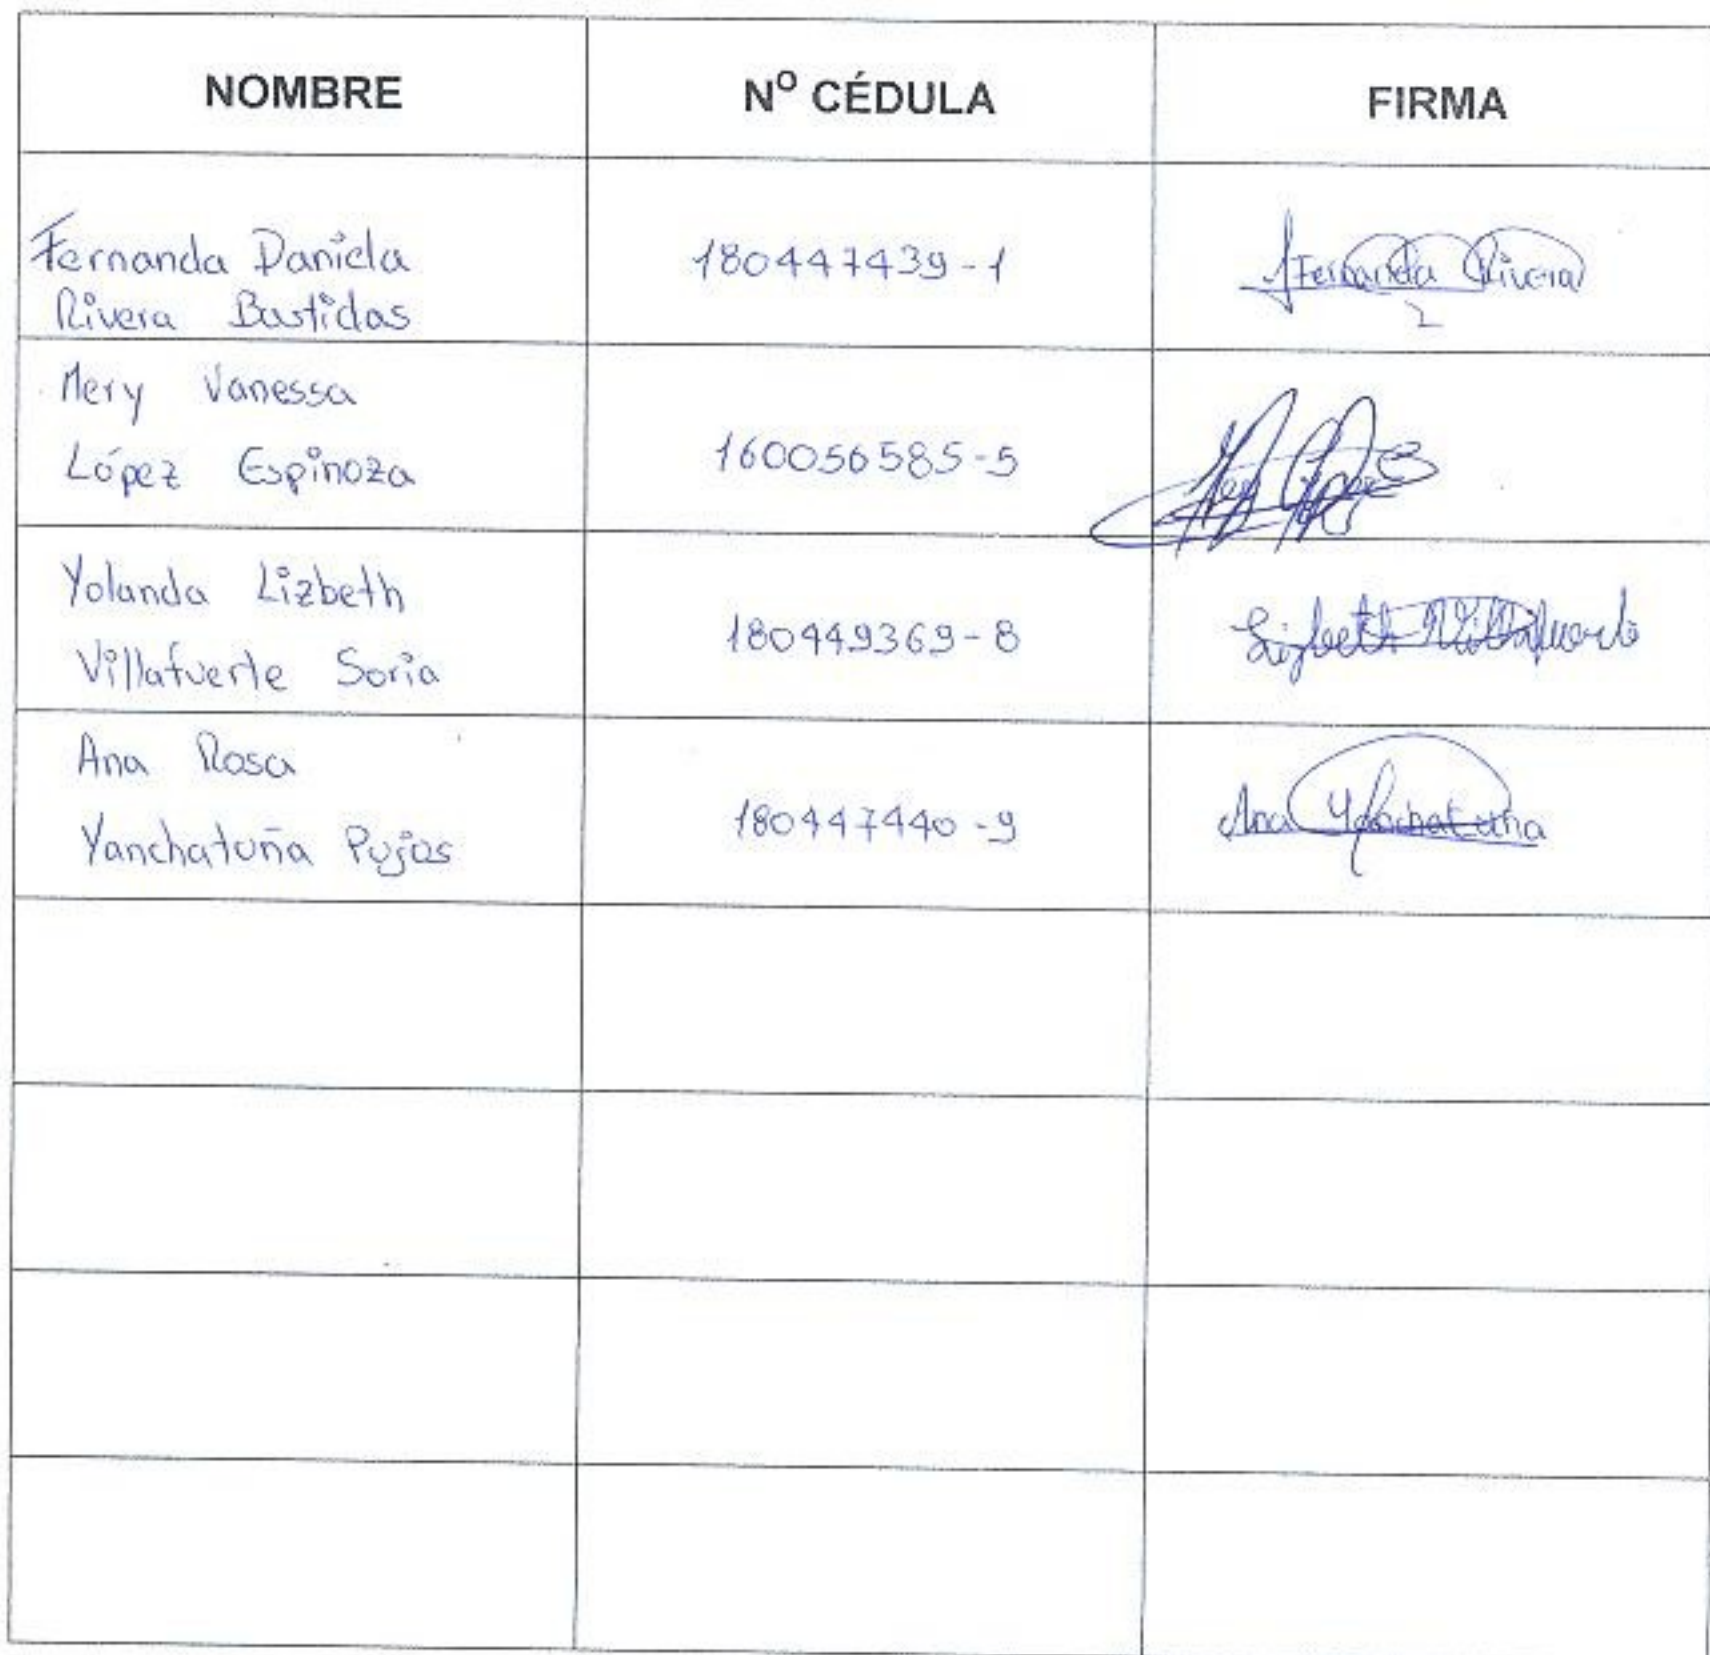 NOMBRE Nº CÉDULA FIRMA
Fernanda Daniela
Rivera Bastidas
180447439-1
Fernanda Rivera
Mery Vanessa
López Espinoza
160056585-5
Mery López
Yolanda Lizbeth
Villafuerte Soria
180449369-8
Lizbeth Villafuerte
Ana Rosa
Yanchatuña Pujos
180447440-9
Ana Yanchatuña